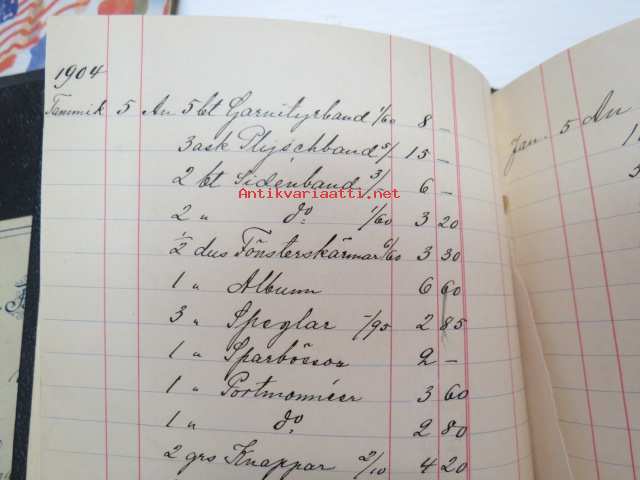 1904
Tammik 5 An 5 bt Garnityrband 1/60 8 –
3 ask Plyschband 5/ 15 –
2 bt Sidenband 3/ 6 –
Antikvariaatti.net
2 " do 1/60 3 20
1/2 dus Fönsterskärmar 6/60 3 30
1 " Album 6 60
3 " Speglar -/95 2 85
1 " Sparbössor 2 –
1 " Portmonnéer 3 60
1 " do 2 80
2 grs Knappar 2/10 4 20
Jan. 5 An